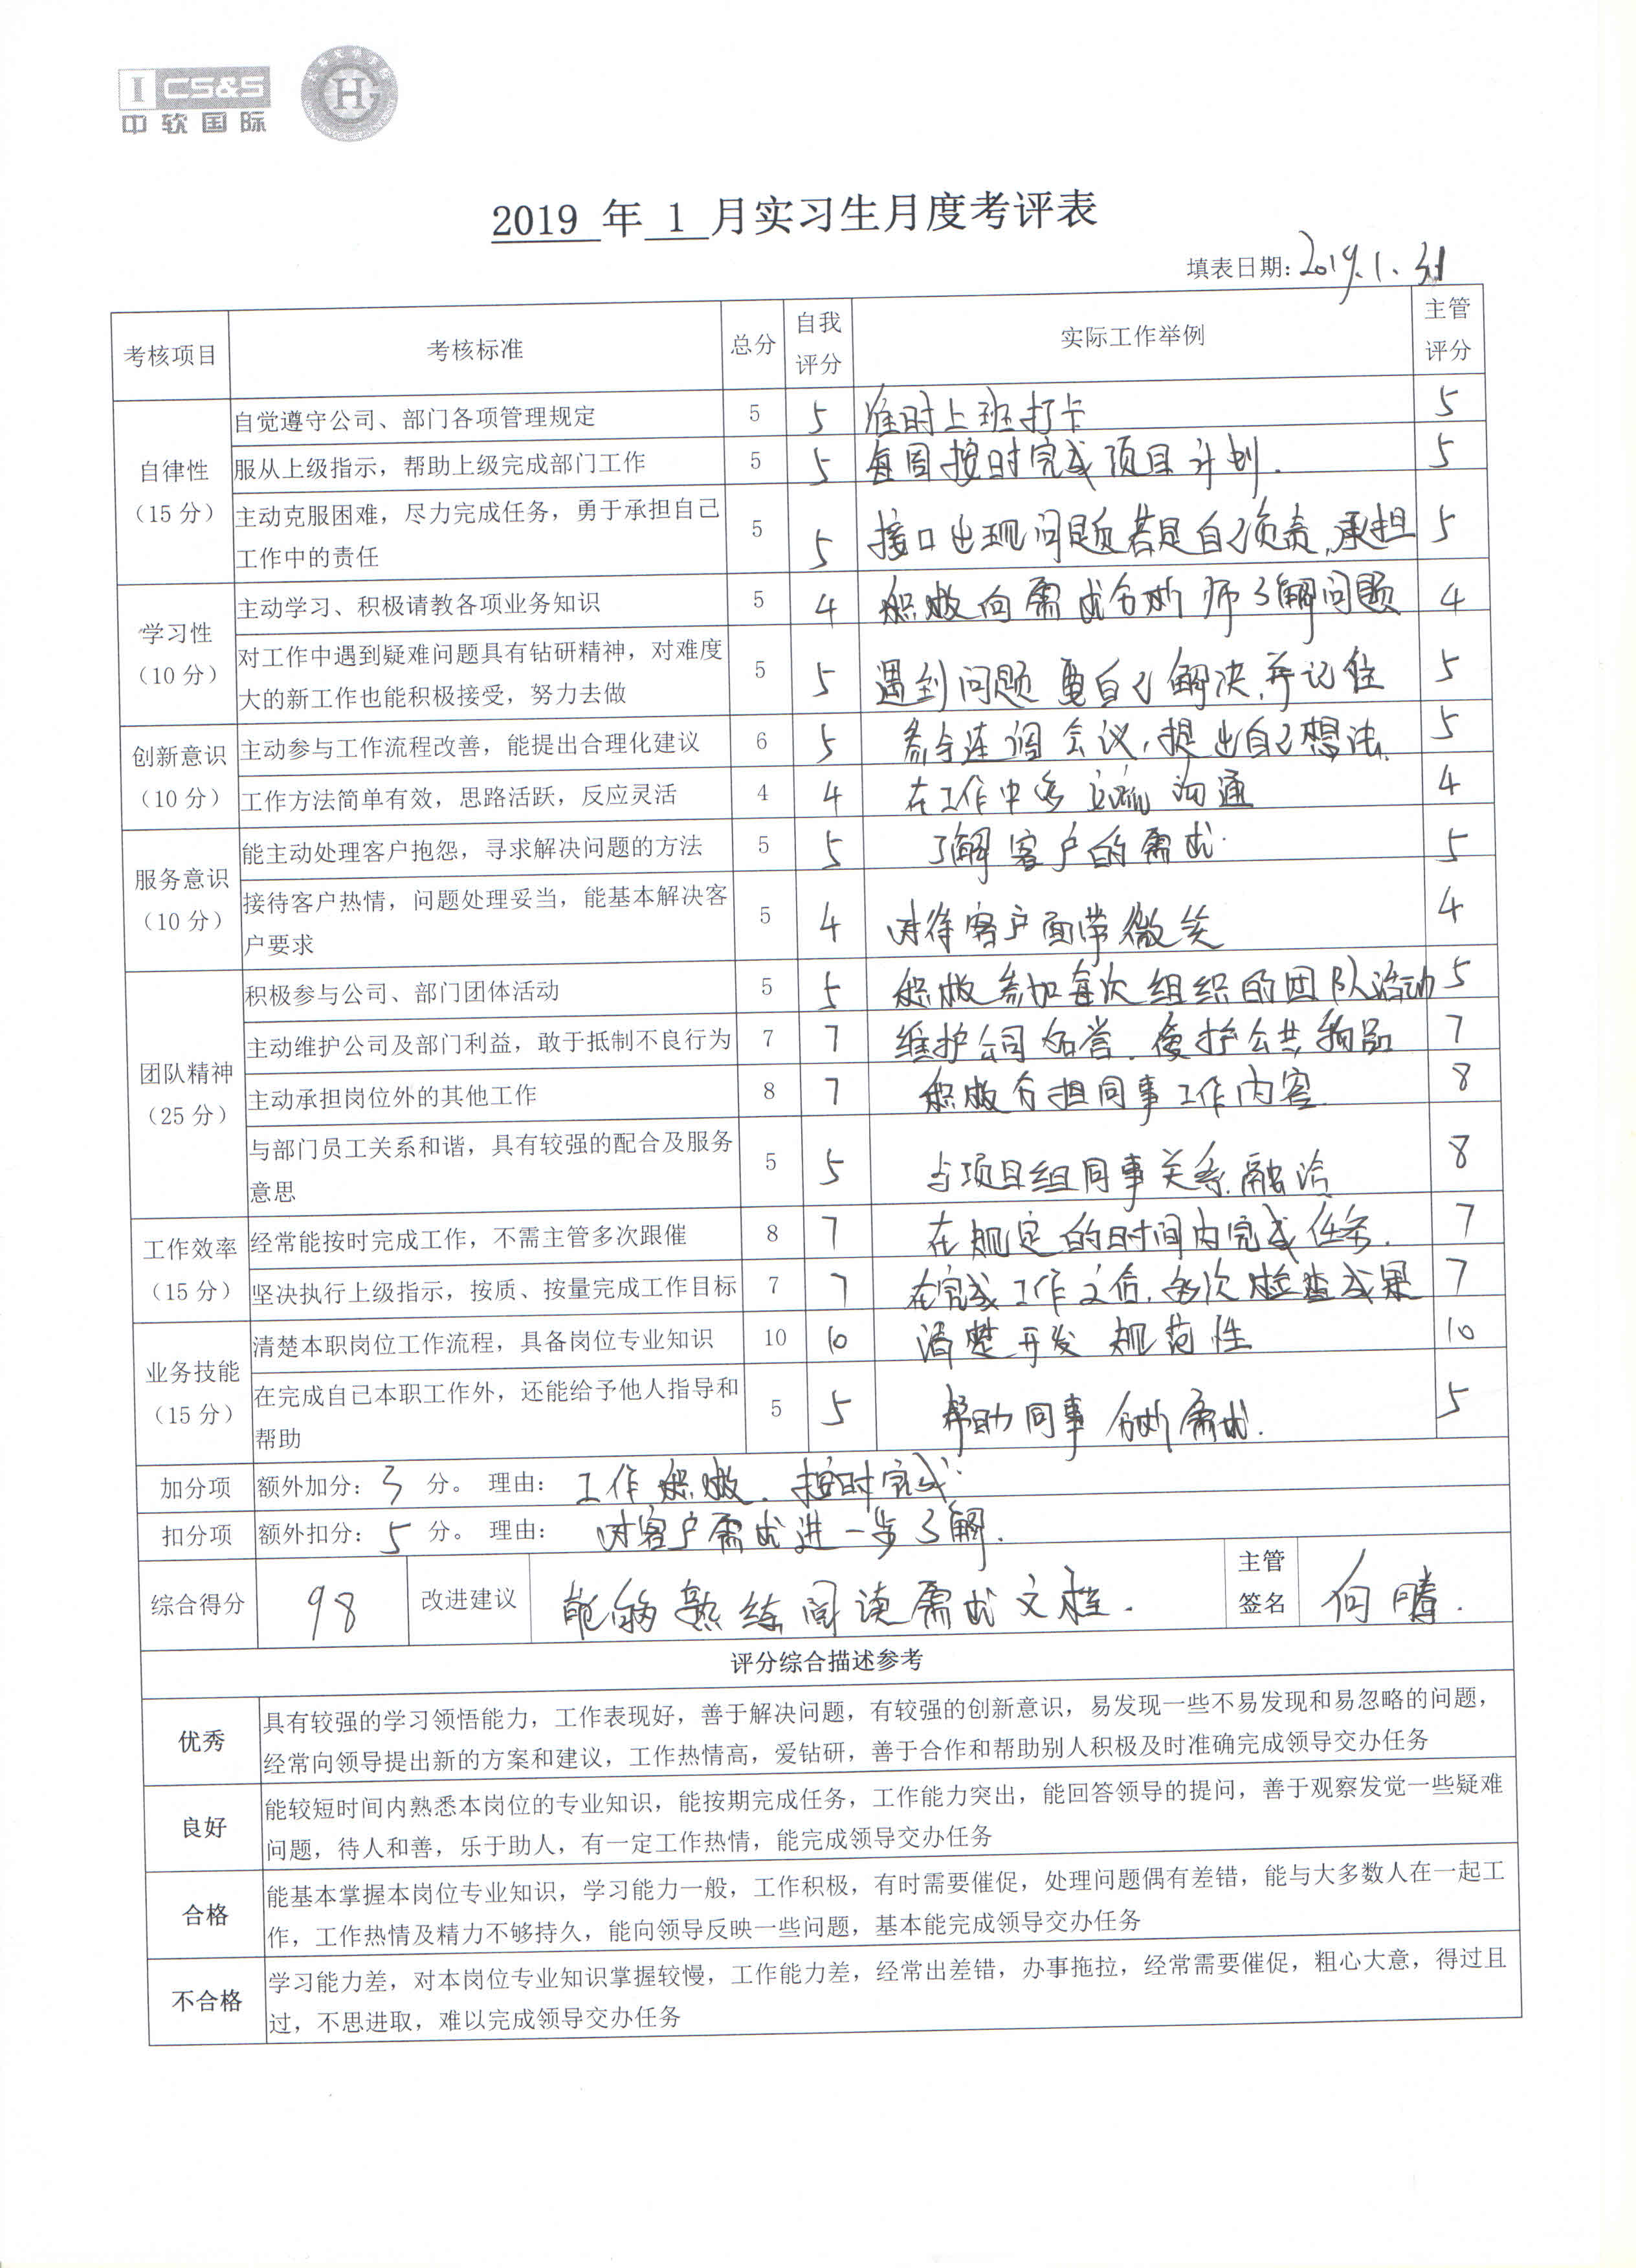 I CS&S
中软国际
H
2019 年 1 月实习生月度考评表
填表日期: 2019.1.31
考核项目 考核标准 总分 自我评分 实际工作举例 主管评分
自律性（15分）
自觉遵守公司、部门各项管理规定 5 5 准时上班打卡 5
服从上级指示，帮助上级完成部门工作 5 5 每周按时完成项目计划. 5
主动克服困难，尽力完成任务，勇于承担自己
工作中的责任 5 5 接口出现问题若是自己负责,承担 5
学习性（10分）
主动学习、积极请教各项业务知识 5 4 积极向需求分析师了解问题 4
对工作中遇到疑难问题具有钻研精神，对难度
大的新工作也能积极接受，努力去做 5 5 遇到问题要自己解决,并记住 5
创新意识（10分）
主动参与工作流程改善，能提出合理化建议 6 5 参与连调会议,提出自己想法. 5
工作方法简单有效，思路活跃，反应灵活 4 4 在工作中多交流沟通 4
服务意识（10分）
能主动处理客户抱怨，寻求解决问题的方法 5 5 了解客户的需求. 5
接待客户热情，问题处理妥当，能基本解决客
户要求 5 4 对待客户面带微笑 4
团队精神（25分）
积极参与公司、部门团体活动 5 5 积极参加每次组织的团队活动 5
主动维护公司及部门利益，敢于抵制不良行为 7 7 维护公司名誉.爱护公共物品 7
主动承担岗位外的其他工作 8 7 积极分担同事工作内容. 8
与部门员工关系和谐，具有较强的配合及服务
意思 5 5 与项目组同事关系融洽 8
工作效率（15分）
经常能按时完成工作，不需主管多次跟催 8 7 在规定的时间内完成任务. 7
坚决执行上级指示，按质、按量完成工作目标 7 7 在完成工作之后,多次检查成果 7
业务技能（15分）
清楚本职岗位工作流程，具备岗位专业知识 10 10 清楚开发规范性 10
在完成自己本职工作外，还能给予他人指导和
帮助 5 5 帮助同事分析需求. 5
加分项 额外加分: 3 分。 理由: 工作积极.按时完成.
扣分项 额外扣分: 5 分。 理由: 对客户需求进一步了解.
综合得分 98 改进建议 能够熟练阅读需求文档. 主管签名 何腾.
评分综合描述参考
优秀
具有较强的学习领悟能力，工作表现好，善于解决问题，有较强的创新意识，易发现一些不易发现和易忽略的问题，
经常向领导提出新的方案和建议，工作热情高，爱钻研，善于合作和帮助别人积极及时准确完成领导交办任务
良好
能较短时间内熟悉本岗位的专业知识，能按期完成任务，工作能力突出，能回答领导的提问，善于观察发觉一些疑难
问题，待人和善，乐于助人，有一定工作热情，能完成领导交办任务
合格
能基本掌握本岗位专业知识，学习能力一般，工作积极，有时需要催促，处理问题偶有差错，能与大多数人在一起工
作，工作热情及精力不够持久，能向领导反映一些问题，基本能完成领导交办任务
不合格
学习能力差，对本岗位专业知识掌握较慢，工作能力差，经常出差错，办事拖拉，经常需要催促，粗心大意，得过且
过，不思进取，难以完成领导交办任务